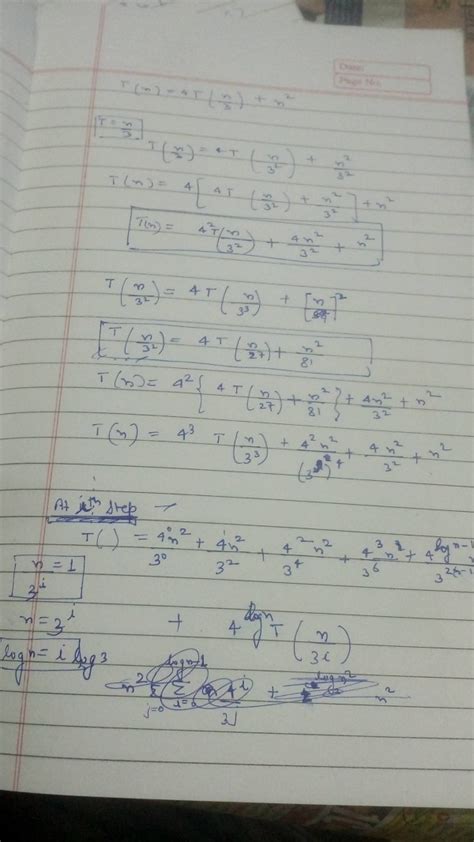 Date:
Page No:
T(n) = 4T(n/3) + n²
T = n/3
T(n/3) = 4T(n/3²) + n²/3²
T(n) = 4[4T(n/3²) + n²/3²] + n²
T(n) = 4²T(n/3²) + 4n²/3² + n²
T(n/3²) = 4T(n/3³) + [n/]²
T(n/3²) = 4T(n/27) + n²/81
T(n) = 4²{4T(n/27) + n²/81} + 4n²/3² + n²
T(n) = 4³ T(n/3³) + 4²n²/(3)⁴ + 4n²/3² + n²
At ith step
T( ) = 4⁰n²/3⁰ + 4n²/3² + 4²n²/3⁴ + 4³n²/3⁶ + 4^(log n-1)
n/3^i = 1
n = 3^i
+ 4^(log n) T(n/3^i)
log n = i log 3
n²